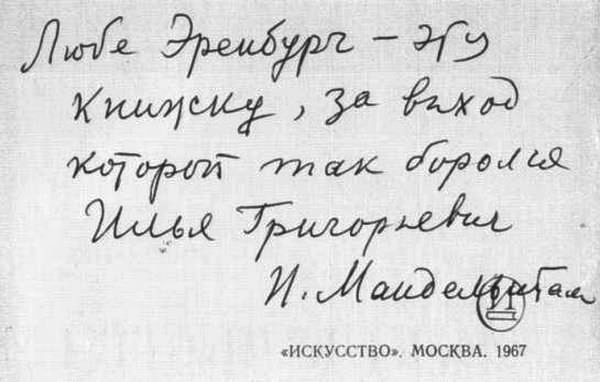 Любе Эренбург – эту
книжку, за выход
которой так боролся
Илья Григорьевич
Н. Мандельштам
«ИСКУССТВО». МОСКВА. 1967